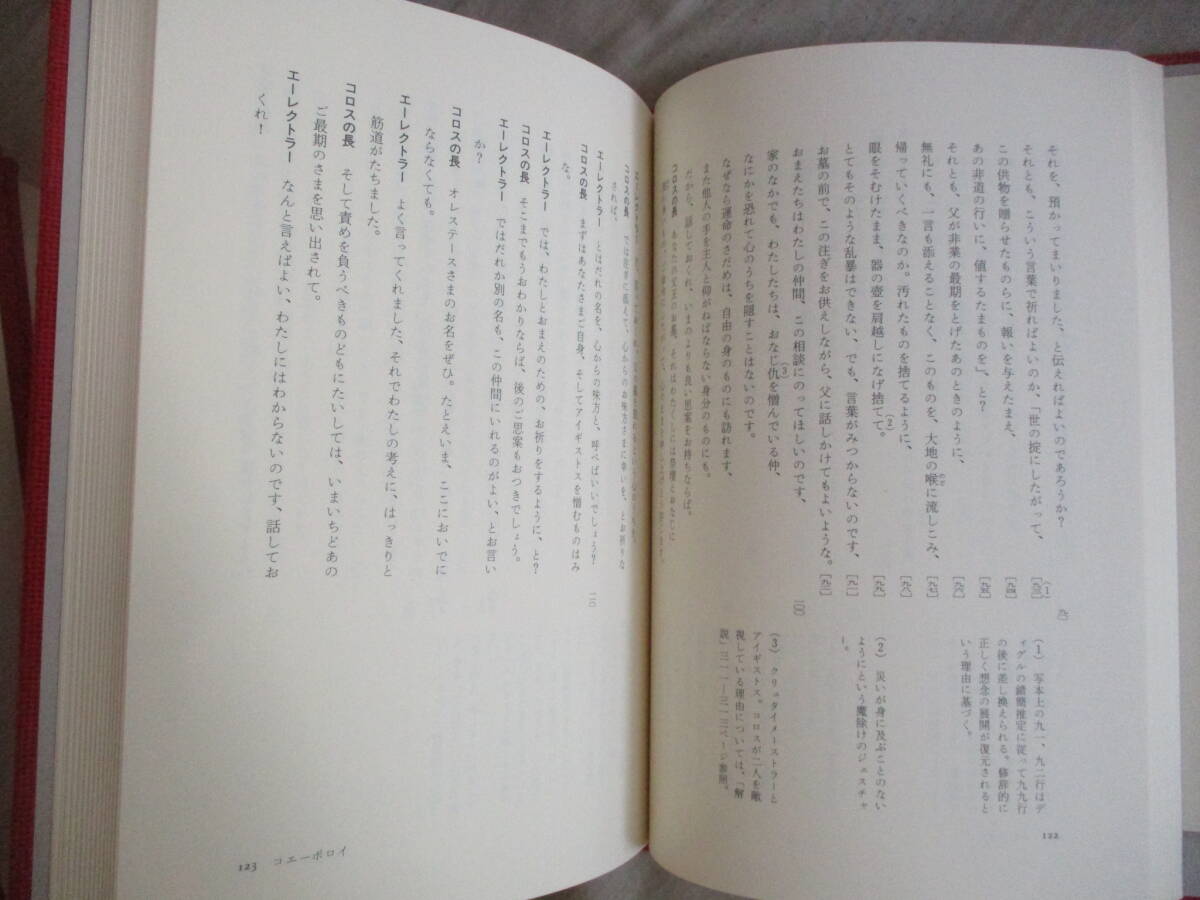 それを、預かってまいりました、と伝えればよいのであろうか?
九〇
それとも、こういう言葉で祈ればよいのか、「世の掟にしたがって、
(1)
[九三]
この供物を贈らせたものらに、報いを与えたまえ、
[九四]
あの非道の行いに、値するたまものを」、と?
[九五]
それとも、父が非業の最期をとげたあのときのように、
[九六]
無礼にも、一言も添えることなく、このものを、大地の喉に流しこみ、
のど
[九七]
帰っていくべきなのか。汚れたものを捨てるように、
[九八]
眼をそむけたまま、器の壺を肩越しになげ捨てて。
(2)
[九九]
とてもそのような乱暴はできない、でも、言葉がみつからないのです、
[九一]
お墓の前で、この注ぎをお供えしながら、父に話しかけてもよいような。
[九二]
おまえたちはわたしの仲間、この相談にのってほしいのです、
一〇〇
家のなかでも、わたしたちは、おなじ仇を憎んでいる仲、
(3)
なにかを恐れて心のうちを隠すことはないのです。
なぜなら運命のさだめは、自由の身のものにも訪れます、
また他人の手を主人と仰がねばならない身分のものにも。
だから、話しておくれ、いまのよりも良い思案をお持ちならば。
コロスの長 あなたの父王のお墓、それはわたくしには祭壇とおなじに
(1) 写本上の九一、九二行はデ
ィグルの錯簡推定に従って九九行
の後に差し換えられる。修辞的に
正しく想念の展開が復元されると
いう理由に基づく。
(2) 災いが身に及ぶことのない
ようにという魔除けのジェスチャ
ー。
(3) クリュタイメーストラーと
アイギストス。コロスが二人を敵
視している理由については、「解
説」三一一―三一三ページ参照。
122
コロスの長 では注ぎに添えて、心からのお味方さまに幸いを、とお祈りな
されば。
エーレクトラー とはだれの名を、心からの味方と、呼べばいいでしょう?
一一〇
コロスの長 まずはあなたさまご自身、そしてアイギストスを憎むものはみ
な。
エーレクトラー では、わたしとおまえのための、お祈りをするように、と?
コロスの長 そこまでもうおわかりならば、後のご思案もおつきでしょう。
エーレクトラー ではだれか別の名も、この仲間にいれるのがよい、とお言い
か?
コロスの長 オレステースさまのお名をぜひ。たとえいま、ここにおいでに
ならなくても。
エーレクトラー よく言ってくれました、それでわたしの考えに、はっきりと
筋道がたちました。
コロスの長 そして責めを負うべきものどもにたいしては、いまいちどあの
ご最期のさまを思い出されて。
エーレクトラー なんと言えばよい、わたしにはわからないのです、話してお
くれ!
123 コエーポロイ